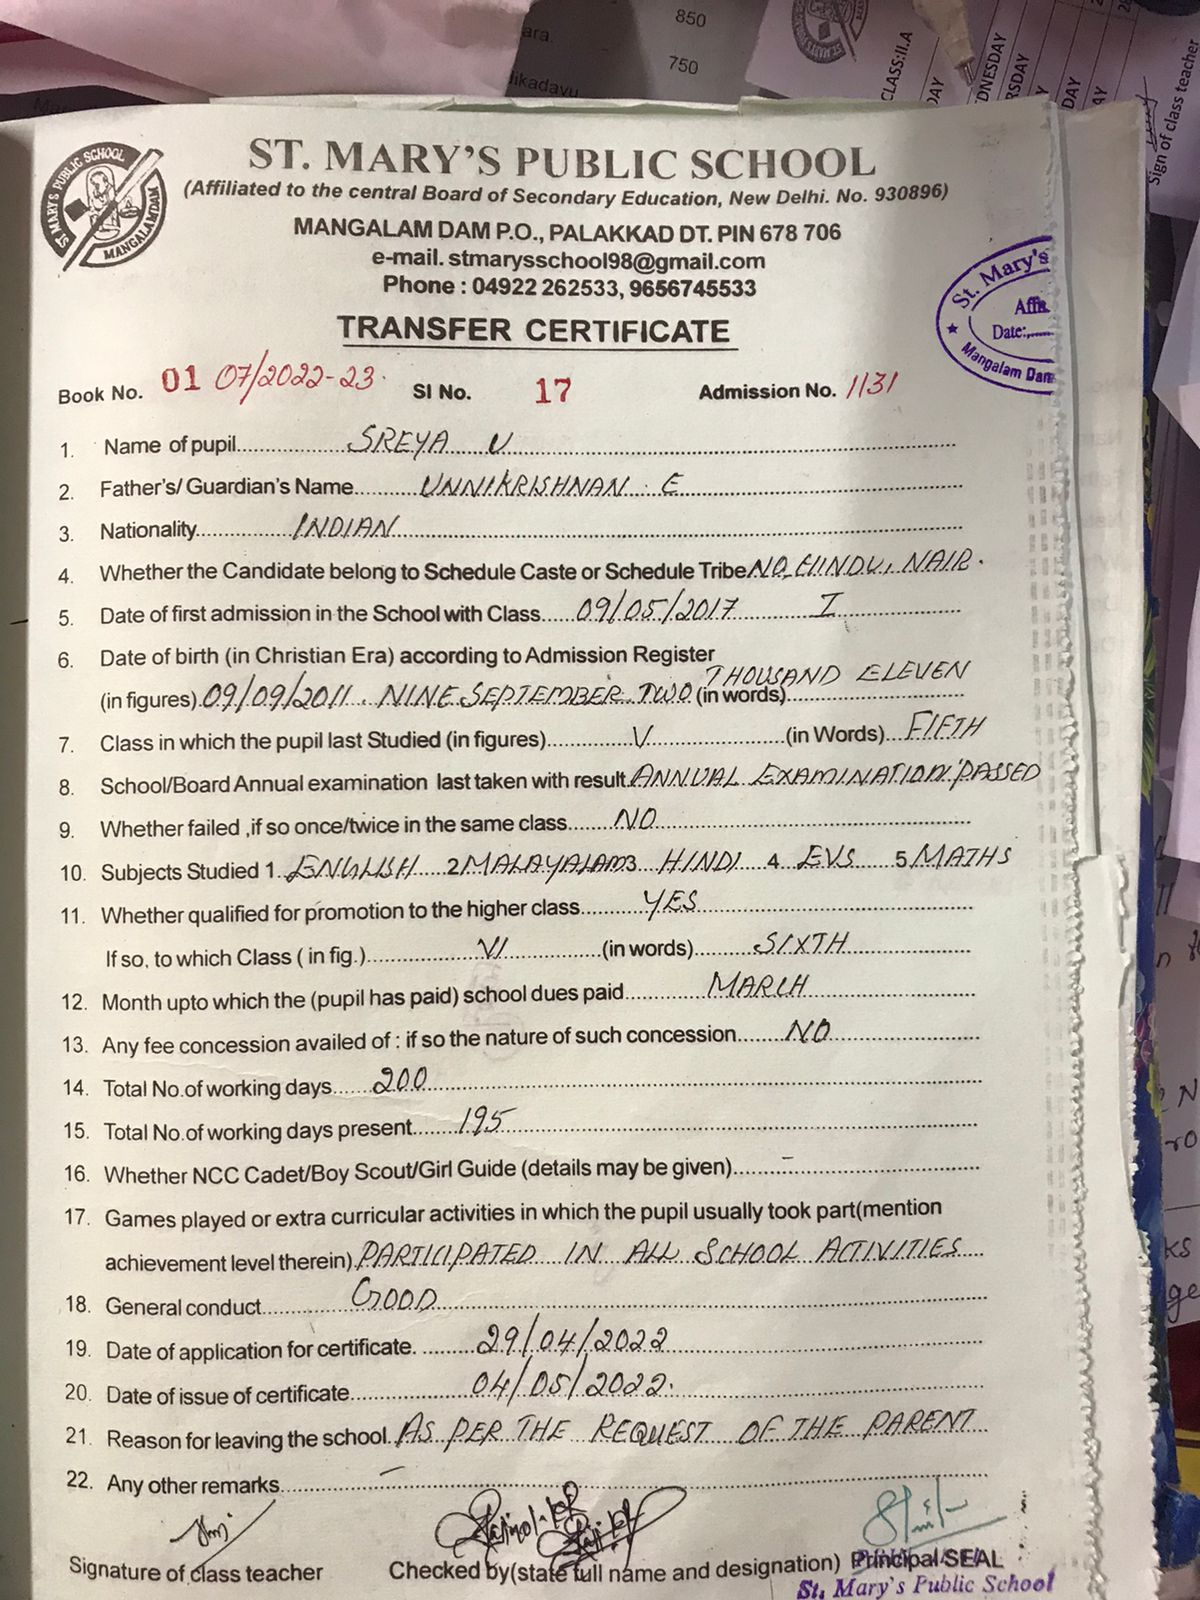 850
750
ara
ikadavu
CLASS:II.A
DAY
DNESDAY
RSDAY
Y
DAY
AY
Sign of class teacher
ST. MARY'S PUBLIC SCHOOL
MANGALAMDAM
ST. MARY'S PUBLIC SCHOOL
(Affiliated to the central Board of Secondary Education, New Delhi. No. 930896)
MANGALAM DAM P.O., PALAKKAD DT. PIN 678 706
e-mail. stmarysschool98@gmail.com
Phone : 04922 262533, 9656745533
St. Mary's
Affi.
Date:......
Mangalam Dam
TRANSFER CERTIFICATE
Book No. 01 07/2022-23 Sl No. 17 Admission No. 1131
1. Name of pupil SREYA U
2. Father's/ Guardian's Name UNNIKRISHNAN . E
3. Nationality INDIAN
4. Whether the Candidate belong to Schedule Caste or Schedule Tribe NO, HINDU, NAIR.
5. Date of first admission in the School with Class 09/05/2017 I
6. Date of birth (in Christian Era) according to Admission Register
THOUSAND ELEVEN
(in figures) 09/09/2011. NINE SEPTEMBER TWO (in words)
7. Class in which the pupil last Studied (in figures) V (in Words) FIFTH
8. School/Board Annual examination last taken with result ANNUAL EXAMINATION 'PASSED
9. Whether failed ,if so once/twice in the same class NO
10. Subjects Studied 1. ENGLISH 2 MALAYALAM 3 HINDI 4. EVS 5 MATHS
11. Whether qualified for promotion to the higher class YES
If so, to which Class ( in fig.) VI (in words) SIXTH
12. Month upto which the (pupil has paid) school dues paid MARCH
13. Any fee concession availed of : if so the nature of such concession NO
14. Total No.of working days 200
15. Total No.of working days present 195
16. Whether NCC Cadet/Boy Scout/Girl Guide (details may be given) –
17. Games played or extra curricular activities in which the pupil usually took part(mention
achievement level therein) PARTICIPATED IN ALL SCHOOL ACTIVITIES
18. General conduct GOOD
19. Date of application for certificate. 29/04/2022
20. Date of issue of certificate 04/05/2022.
21. Reason for leaving the school. AS PER THE REQUEST OF THE PARENT
22. Any other remarks –
Signature of class teacher Checked by(state full name and designation) Principal SEAL
St. Mary's Public School